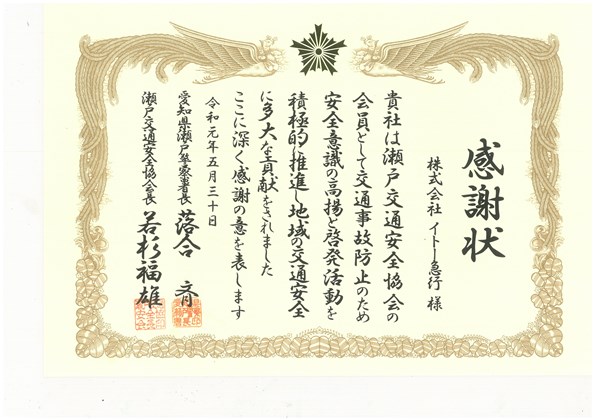 感謝状
株式会社 イトー急行 様
貴社は瀬戸交通安全協会の
会員として交通事故防止のため
安全意識の高揚と啓発活動を
積極的に推進し地域の交通安全
に多大な貢献をされました
ここに深く感謝の意を表します
令和元年五月三十日
愛知県瀬戸警察署長 落合 斉
瀬戸交通安全協会長 若杉福雄